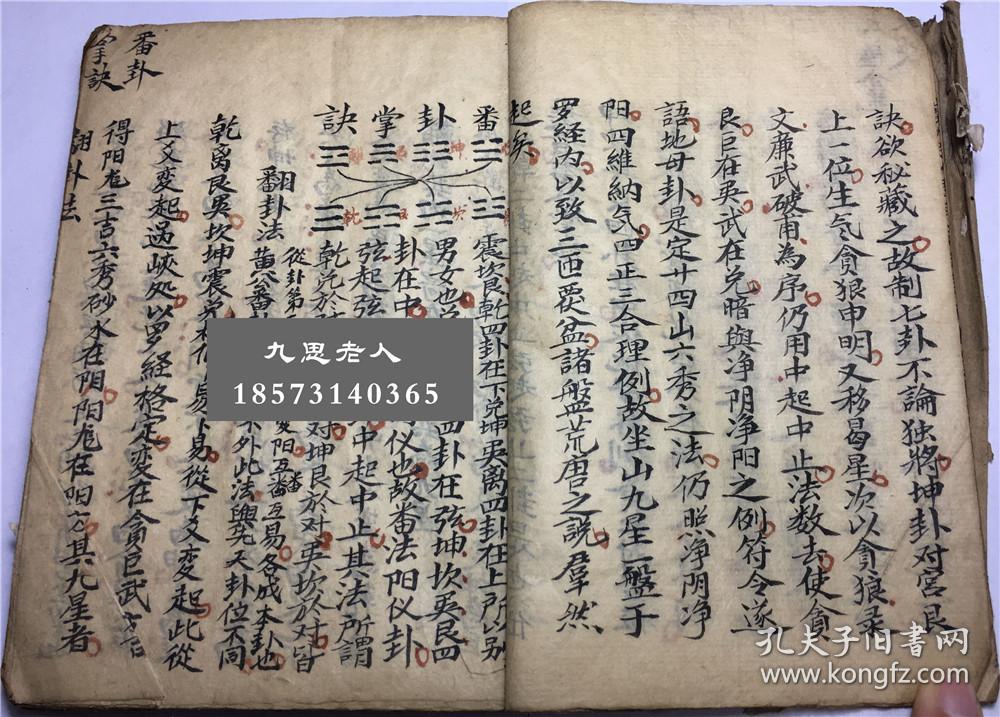 訣欲秘藏之故制七卦不論独將坤卦对宮艮
上一位生气貪狼申明又移曷星次以貪狼录
文廉武破甫為序仍用中起中止法数去使貪
艮巨在巽武在兌暗與净阴净阳之例符合遂
語地母卦是定廿四山六秀之法仍照净阴净
阳四維納气四正三合理例故坐山九星一盤于
罗経內以致三西愛盆諸盤荒唐之説羣然
起矣
番卦掌訣
震坎艮乾四卦在下兌坤巽离四卦在上所以别
男女也
四卦在弦坤坎巽艮四
卦在中
仪也故番法阳仪卦
弦起弦
中起中止其法所謂
乾兌於
对坤艮於对巽坎於对皆
翻卦法
從卦第
变阳互番互易各成本卦也
黄公番
不外此法與先天卦位不同
乾离艮巽坎坤震兌
下易從下爻变起此從
上爻变起过峽处以罗経格定变在貪巨武
得阳龙三吉六秀砂水在阳阳龙在阳其九星者
番卦
掌訣
翻卦法
九思老人
18573140365
孔夫子旧書网
www.kongfz.com